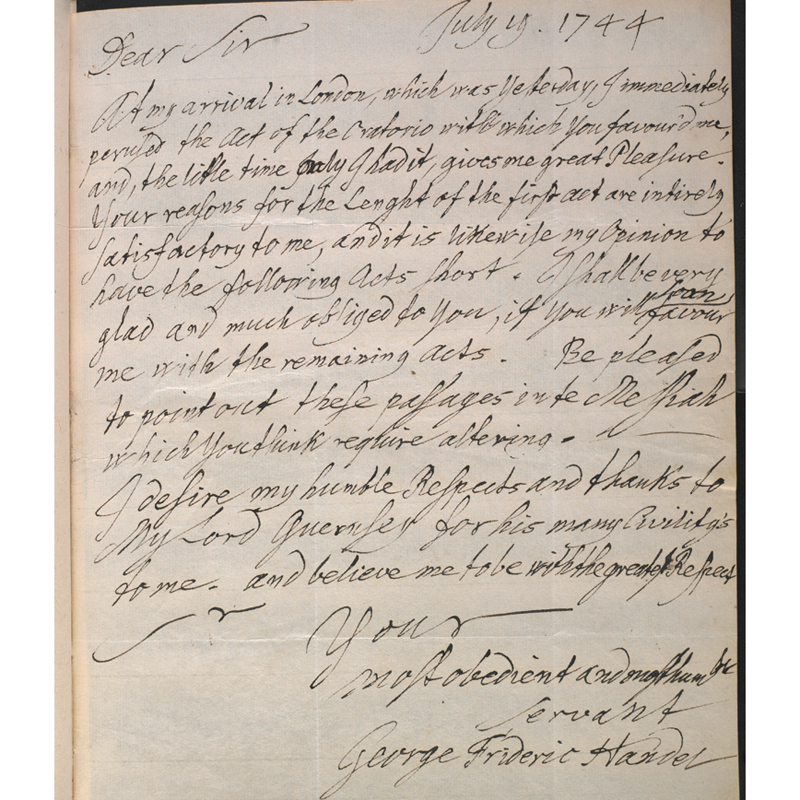 July 19. 1744
Dear Sir
At my arrival in London, which was Yesterday, I immediately
perused the Act of the Oratorio with which You favour'd me,
and, the little time only I had it, gives me great Pleasure.
Your reasons for the Lenght of the first act are intirely
Satisfactory to me, and it is likewise my Opinion to
have the following Acts short. I shall be very
glad and much obliged to You, if You will soon
favour
me with the remaining Acts. Be pleased
to point out these passages in te Messiah
which You think require altering.
I desire my humble Respects and thanks to
My Lord Guernsey for his many Civility's
to me. and believe me to be with the greatest Respect
Sr
Your
most obedient and most humble
Servant
George Frideric Handel